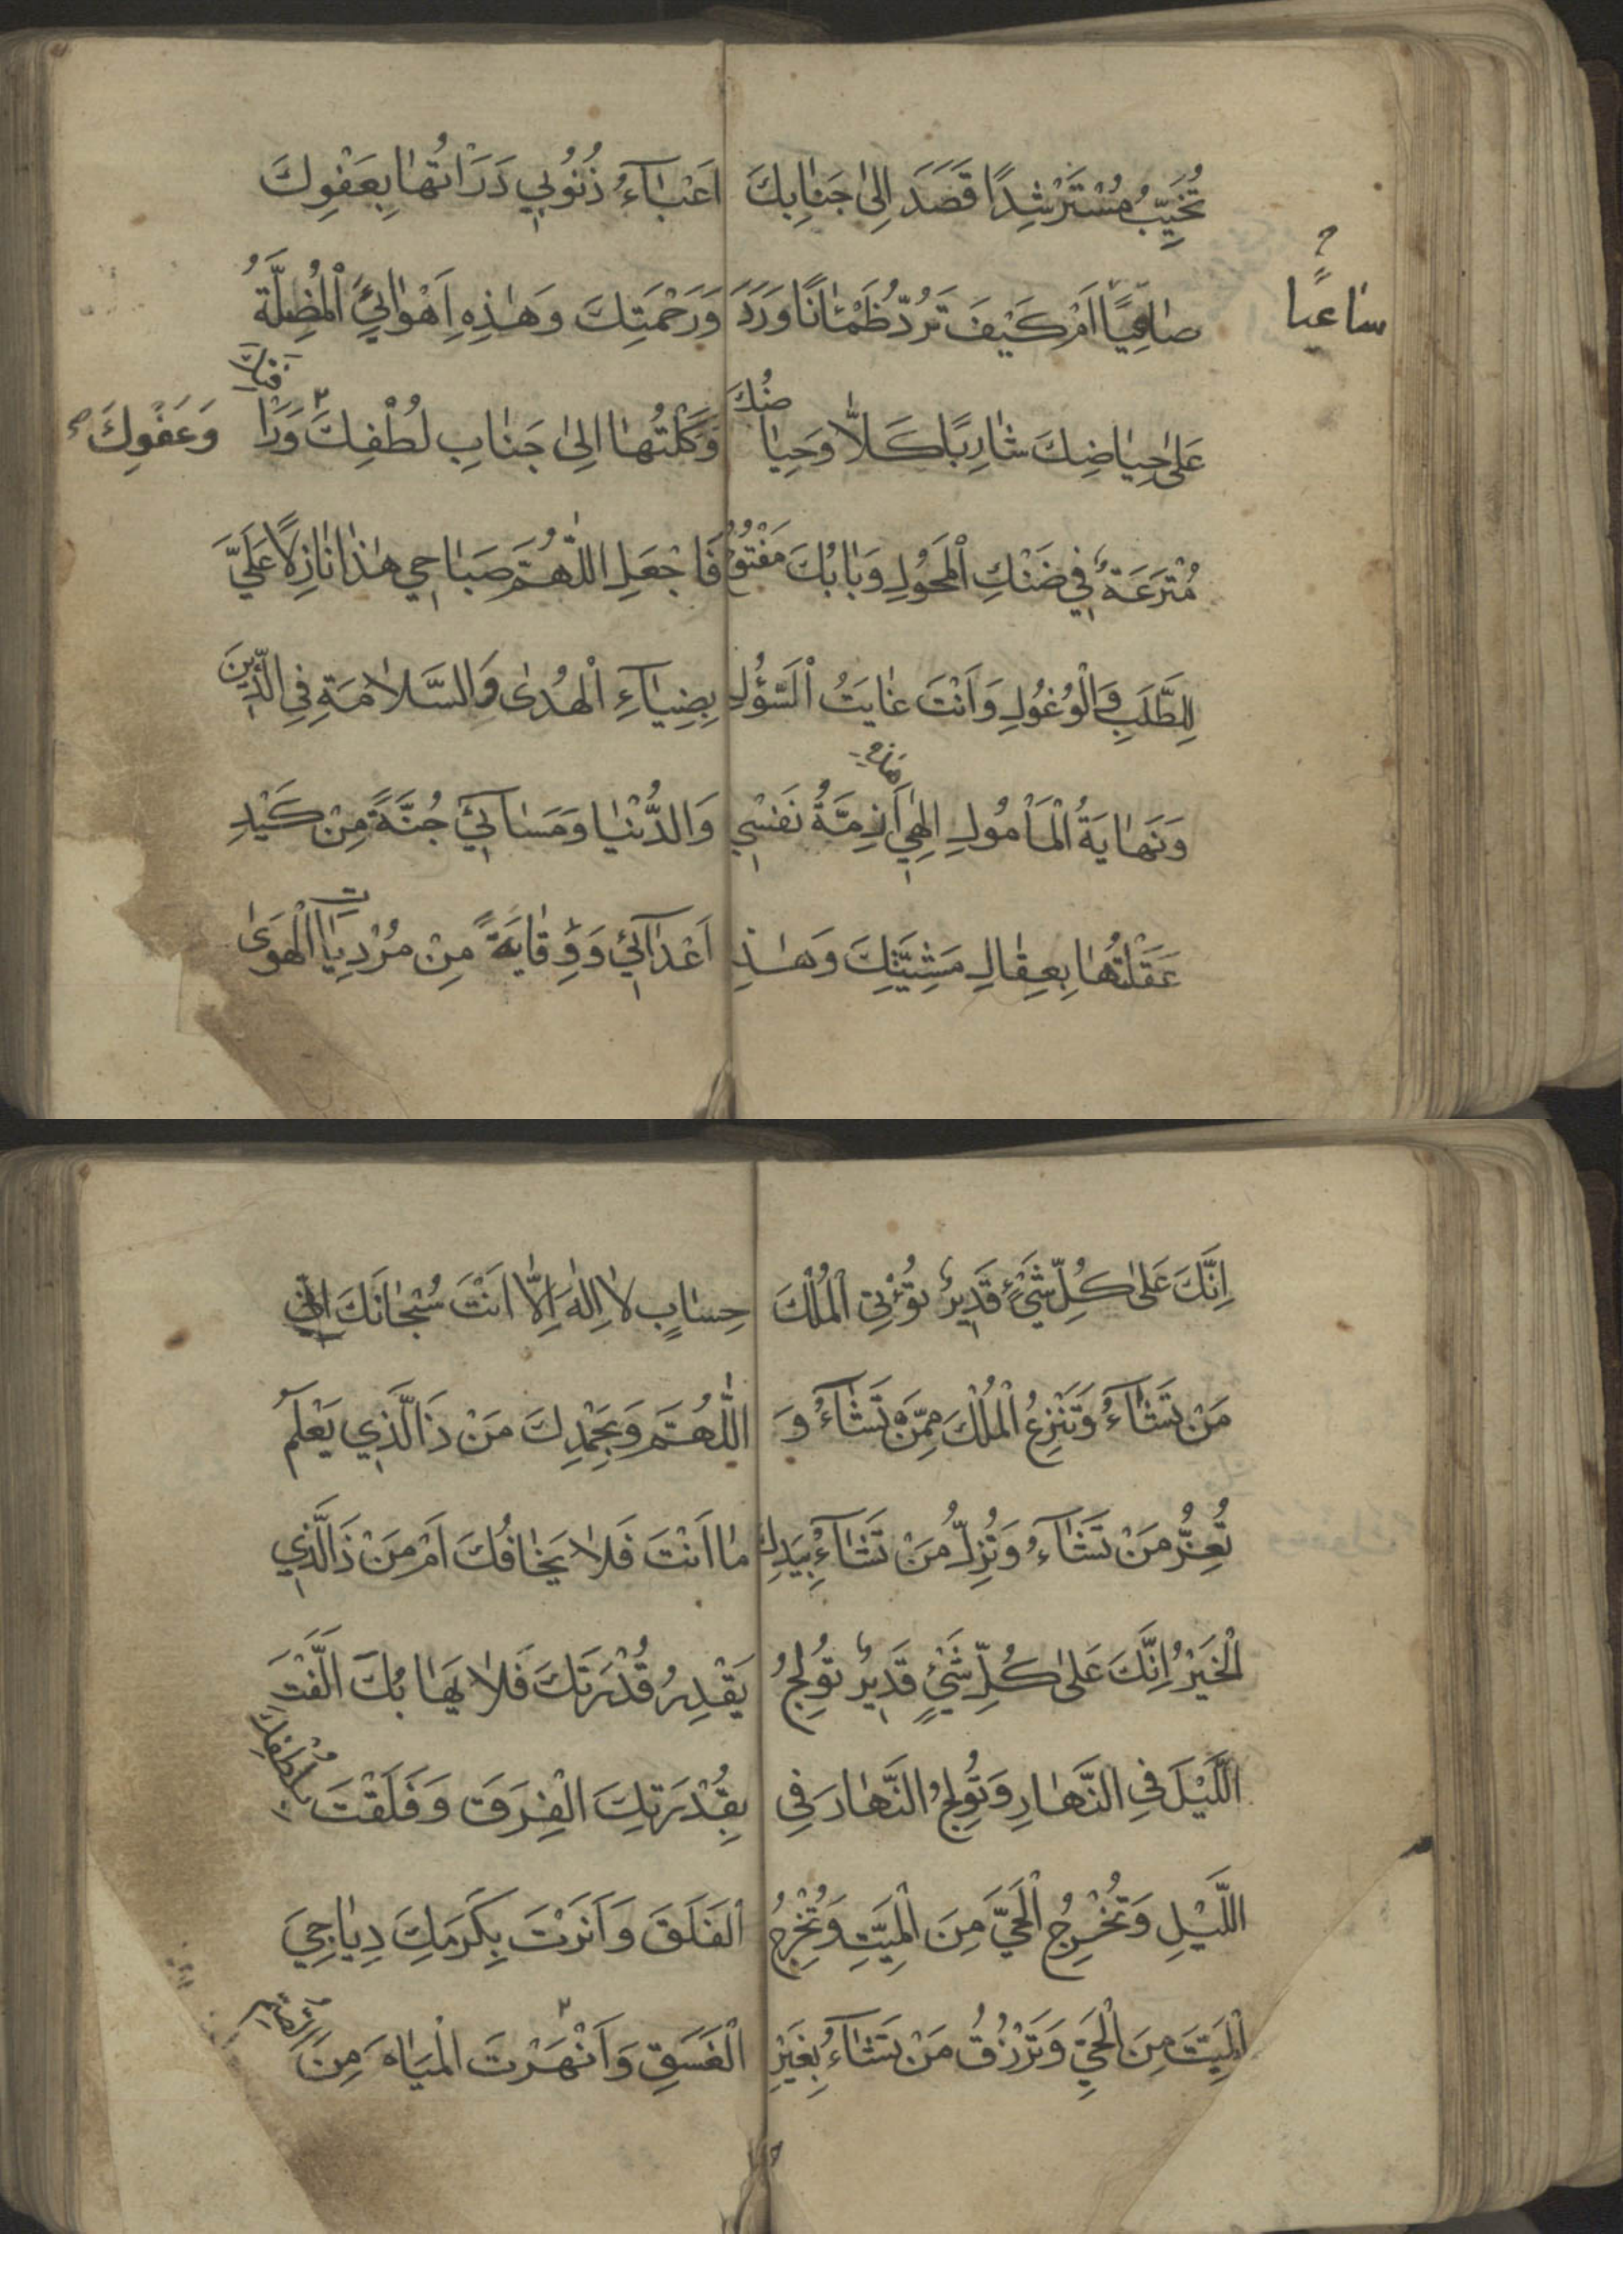 تُخَيِّبُ مُسْتَرْشِدًا قَصَدَ اِلىٰ جَنٰابِكَ
صٰاقِبًا اَمْ كَيْفَ تَرُدُّ ظَمْئٰانًا وَرَدَ
ساعيا
عَلىٰ حِيٰاضِكَ شٰارِبًا كَلاّٰ وَحِيٰا
ضُكَ
مُتْرَعَةٌ فِي ضَنْكِ الْمَحُوُلِ وَبٰابُكَ مَفْتُوُحٌ
لِلطَّلَبِ وَالْوُغُولِ وَاَنْتَ غٰايَتُ السُّؤُلِ
وَنَهٰايَةُ الْمَأْمُولِ اِلٰهِي اَزِمَّةُ نَفْسِي
عَقَلْتُهٰا بِعِقٰالِ مَشِيَّتِكَ وَهٰذِ
اَعْبٰآءُ ذُنُوُبِي دَرَأْتُهٰا بِعَفْوِكَ
وَرَحْمَتِكَ وَهٰذِهِ اَهْوٰائِيَ الْمُضِلَّةُ
وَكَلْتُهٰا اِلىٰ جَنٰابِ لُطْفِكَ وَرَأْ
فتك
وَعَفْوِكَ
فَاجْعَلِ اللّٰهُمَّ صَبٰاحِي هٰذٰا نٰازِلًا عَلَيَّ
بِضِيٰآءِ الْهُدىٰ وَالسَّلاٰمَةِ فِي الدِّينِ
وَالدُّنْيٰا وَمَسٰائِي جُنَّةً مِنْ كَيْدِ
اَعْدٰآئِي وَوِقٰايَةً مِنْ مُرْدِيٰاتِ الْهَوىٰ
اِنَّكَ عَلىٰ كُلِّ شَيْءٍ قَدِيرٌ تُؤْتِي الْمُلْكَ
مَنْ تَشٰآءُ وَتَنْزِعُ الْمُلْكَ مِمَّنْ تَشٰآءُ وَ
تُعِزُّ مَنْ تَشٰآءُ وَتُذِلُّ مَنْ تَشٰآءُ بِيَدِكَ
الْخَيْرُ اِنَّكَ عَلىٰ كُلِّ شَيْءٍ قَدِيرٌ تُولِجُ
اللَّيْلَ فِي النَّهٰارِ وَتُولِجُ النَّهٰارَ فِي
اللَّيْلِ وَتُخْرِجُ الْحَيَّ مِنَ الْمَيِّتِ وَتُخْرِجُ
الْمَيِّتَ مِنَ الْحَيِّ وَتَرْزُقُ مَنْ تَشٰآءُ بِغَيْرِ
حِسٰابٍ لاٰ اِلٰهَ اِلاّٰ اَنْتَ سُبْحٰانَكَ
اللّٰهُمَّ وَبِحَمْدِكَ مَنْ ذَا الَّذِي يَعْلَمُ
مٰا اَنْتَ فَلاٰ يَخٰافُكَ اَمْ مَنْ ذَا الَّذِي
يَقْدِرُ قُدْرَتَكَ فَلاٰ يَهٰابُكَ اَلَّفْتَ
بِقُدْرَتِكَ الْفِرَقَ وَفَلَقْتَ بِلُطْفِكَ
الْفَلَقَ وَاَنَرْتَ بِكَرَمِكَ دِيٰاجِيَ
الْغَسَقِ وَاَنْهَرْتَ الْمِيٰاهَ مِنَ